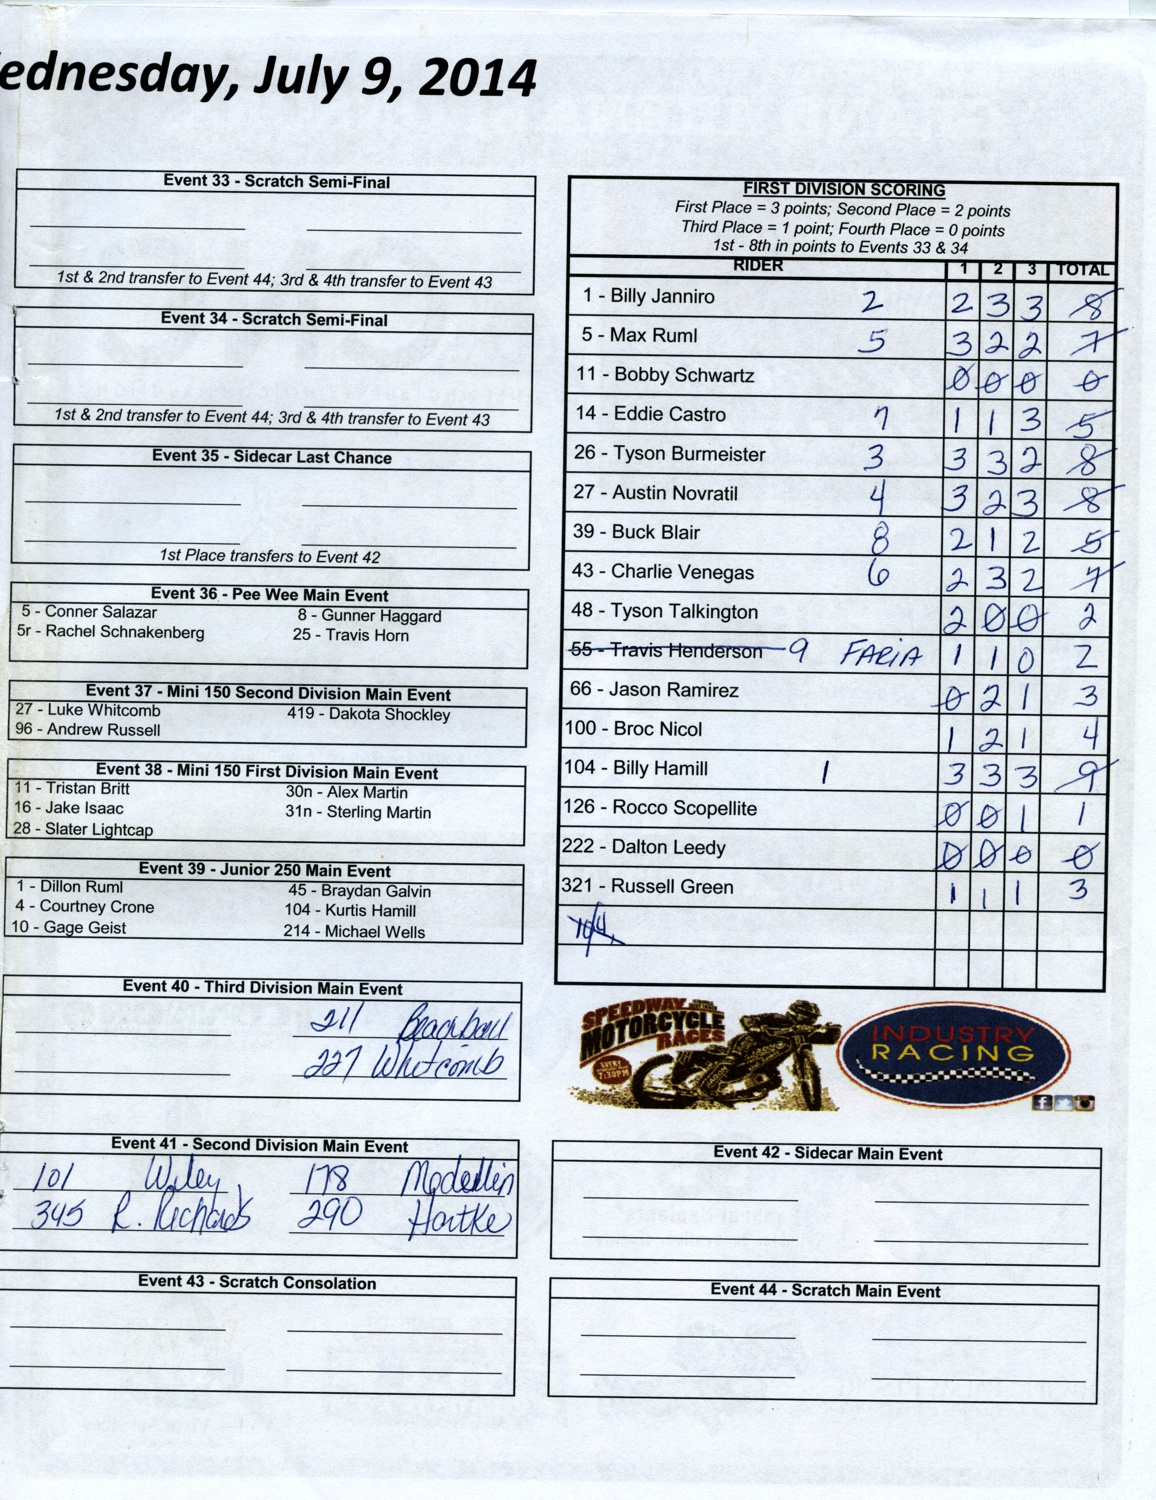 ednesday, July 9, 2014
Event 33 - Scratch Semi-Final
1st & 2nd transfer to Event 44; 3rd & 4th transfer to Event 43
Event 34 - Scratch Semi-Final
1st & 2nd transfer to Event 44; 3rd & 4th transfer to Event 43
Event 35 - Sidecar Last Chance
1st Place transfers to Event 42
Event 36 - Pee Wee Main Event
5 - Conner Salazar 8 - Gunner Haggard
5r - Rachel Schnakenberg 25 - Travis Horn
Event 37 - Mini 150 Second Division Main Event
27 - Luke Whitcomb 419 - Dakota Shockley
96 - Andrew Russell
Event 38 - Mini 150 First Division Main Event
11 - Tristan Britt 30n - Alex Martin
16 - Jake Isaac 31n - Sterling Martin
28 - Slater Lightcap
Event 39 - Junior 250 Main Event
1 - Dillon Ruml 45 - Braydan Galvin
4 - Courtney Crone 104 - Kurtis Hamill
10 - Gage Geist 214 - Michael Wells
Event 40 - Third Division Main Event
211 Beachball
227 Whitcomb
Event 41 - Second Division Main Event
101 Wiley 178 Medellin
345 R. Richards 290 Hartke
Event 43 - Scratch Consolation
FIRST DIVISION SCORING
First Place = 3 points; Second Place = 2 points
Third Place = 1 point; Fourth Place = 0 points
1st - 8th in points to Events 33 & 34
RIDER 1 2 3 TOTAL
1 - Billy Janniro 2 2 3 3 8
5 - Max Ruml 5 3 2 2 7
11 - Bobby Schwartz 0 0 0 0
14 - Eddie Castro 7 1 1 3 5
26 - Tyson Burmeister 3 3 3 2 8
27 - Austin Novratil 4 3 2 3 8
39 - Buck Blair 8 2 1 2 5
43 - Charlie Venegas 6 2 3 2 7
48 - Tyson Talkington 2 0 0 2
55 - Travis Henderson 9 FARIA 1 1 0 2
66 - Jason Ramirez 0 2 1 3
100 - Broc Nicol 1 2 1 4
104 - Billy Hamill 1 3 3 3 9
126 - Rocco Scopellite 0 0 1 1
222 - Dalton Leedy 0 0 0 0
321 - Russell Green 1 1 1 3
SPEEDWAY
MOTORCYCLE
RACES
7:30PM
INDUSTRY
RACING
Event 42 - Sidecar Main Event
Event 44 - Scratch Main Event